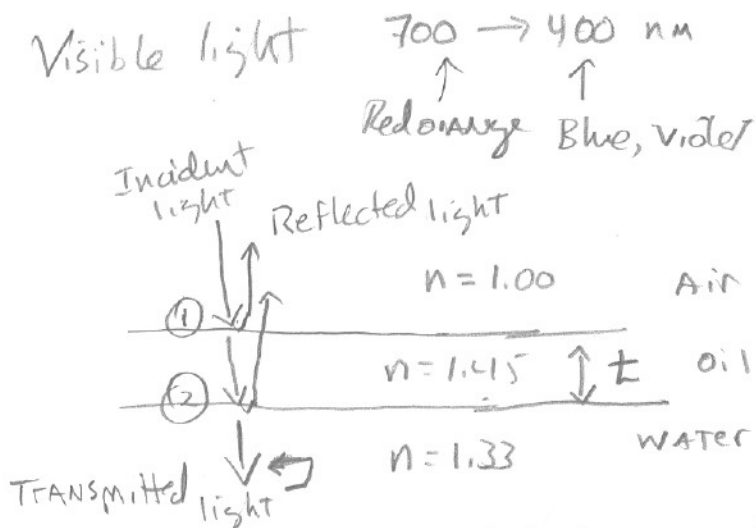 Visible light 700 → 400 nm
Red orange Blue, Violet
Incident light
Reflected light
n = 1.00 Air
①
n = 1.45 t Oil
②
n = 1.33 WATER
TRANSMitted light